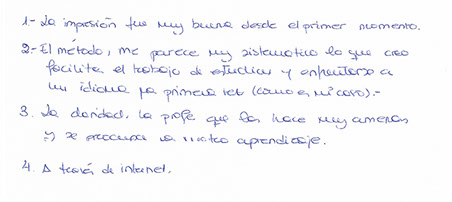 1.- La impresión fue muy buena desde el primer momento.
2.- El método, me parece muy sistematico lo que creo
facilita el trabajo de estudiar y enfrentarse a
un idioma por primera vez (como es mi caso).-
3. La claridad, la profe que las hace muy amenas
y se preocupa de nuestro aprendizaje.
4. A través de internet.